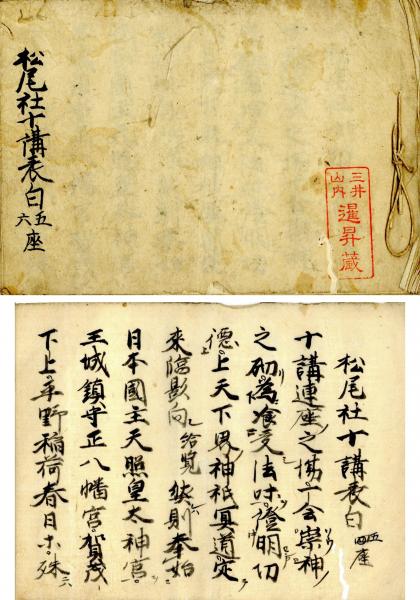 松尾社十講表白 五六座
三井
山内
暹昇蔵
松尾社十講表白 五四座
十講連座之場下会崇神
之砌為飡受法味證明切
徳上天下界神祇冥道定
来臨影向給覧然則奉始
日本國主天照皇太神宮
王城鎮守正八幡宮賀茂
下上平野稲荷春日
殊